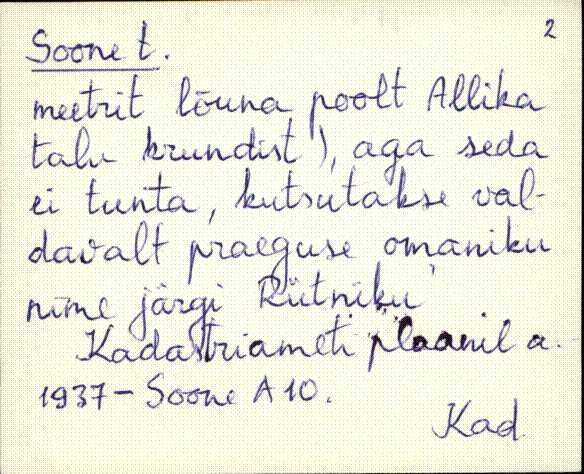 2
Soone t.
meetrit lõuna poolt Allika
talu krundist), aga seda
ei tunta, kutsutakse val-
davalt praeguse omaniku
nime järgi Rütniku
Kadastriameti plaanil a.
1937 – Soone A 10.
Kad